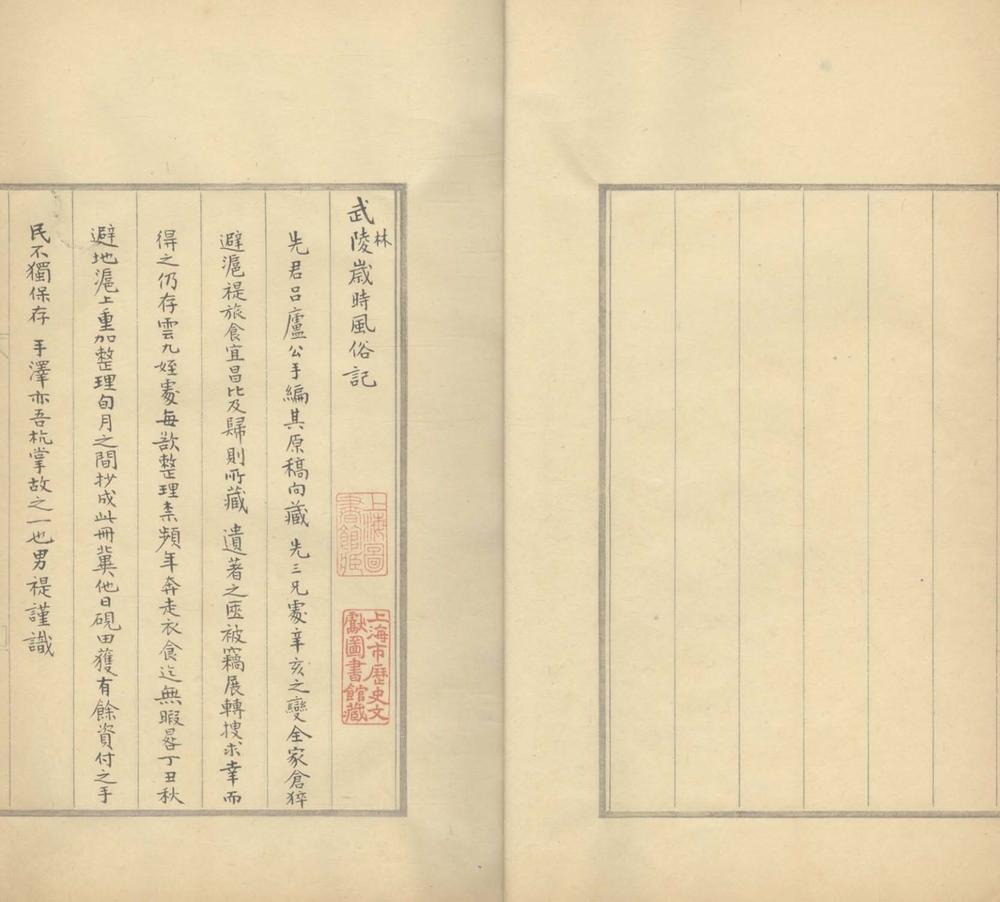 武陵歲時風俗記
林
先君呂廬公手編其原稿向藏 先三兄處辛亥之變全家倉猝
避滬禔旅食宜昌比及歸則所藏 遺著之匧被竊展轉搜求幸而
得之仍存雲九姪處每欲整理柰頻年奔走衣食迄無暇晷丁丑秋
避地滬上重加整理旬月之間抄成此冊冀他日硯田獲有餘資付之手
民不獨保存 手澤亦吾杭掌故之一也男禔謹識
上海圖書館藏
上海市歷史文獻圖書館藏